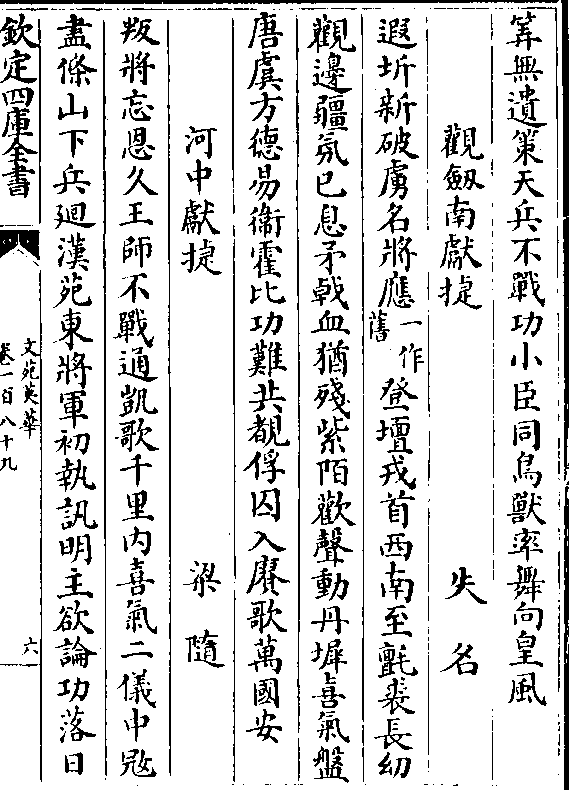 筭無遺策天兵不戰功小臣同鳥獸率舞向皇風
觀劔南獻捷　失名
遐圻新破虜名將應一作舊登壇戎首西南至氈裘長幼
觀邊疆氛已息矛戟血猶殘紫陌歡聲動丹墀喜氣盤
唐虞方德易衞霍比功難共覩俘囚入賡歌萬國安
河中獻捷　梁隨
叛將忘恩久王師不戰通凱歌千里内喜氣二儀中冦
盡條山下兵廻漢苑東將軍初執訊明主欲論功落日
欽定四庫全書
文苑英華
卷一百八十九
六